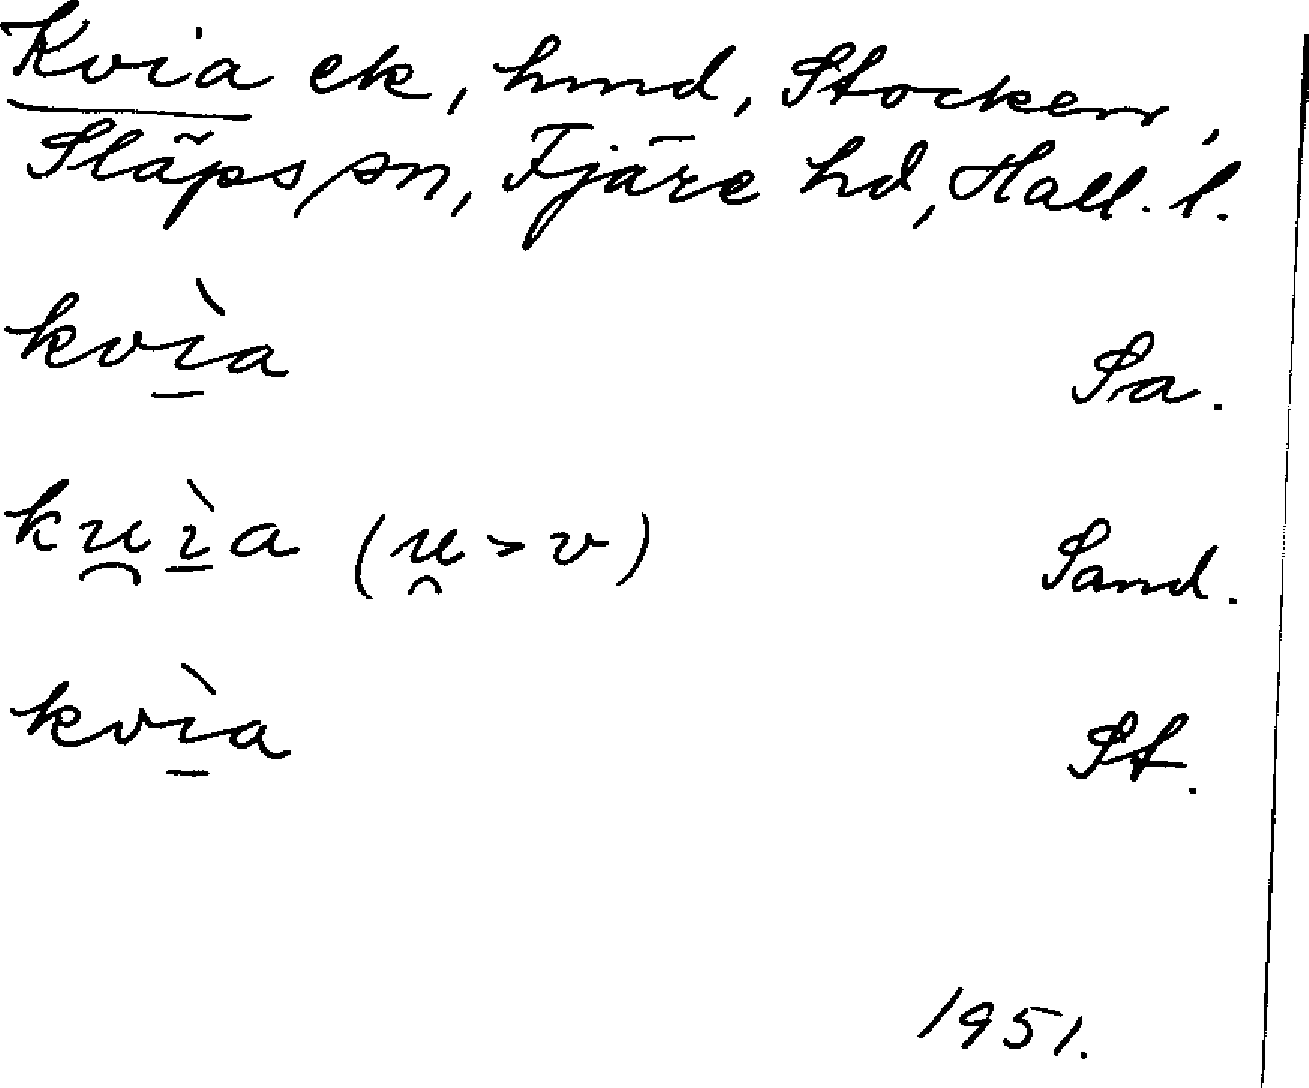 Kvia ek, hmd, Stocken,
Släps sn, Fjäre hd, Hall. l.
kvì̠a Sa.
ku̯ì̠a (u̯ > v) Sand.
kvì̠a St.
1951.